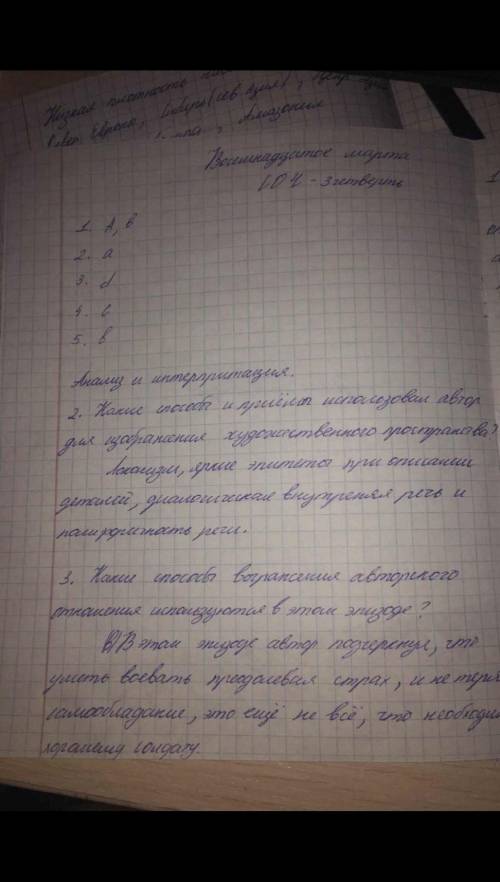 Низкая плотность
Европа, Сибирь (сев. Азия),
Амазония
Восемнадцатое марта
СОЧ - 3 четверть
1. A, b
2. a
3. d
4. c
5. b
Анализ и интерпритация.
2. Какие способы и приёмы использовал автор
для изображения художественного пространства?
яркие эпитеты при описании
деталей, диалогическая внутреняя речь и
речи.
3. Какие способы выражения авторского
отношения используются в этом эпизоде?
В этом эпизоде автор подчеркнул, что
уметь воевать преодолевая страх, и не теря
самообладание, это ещё не всё, что необходим
хорошему солдату.